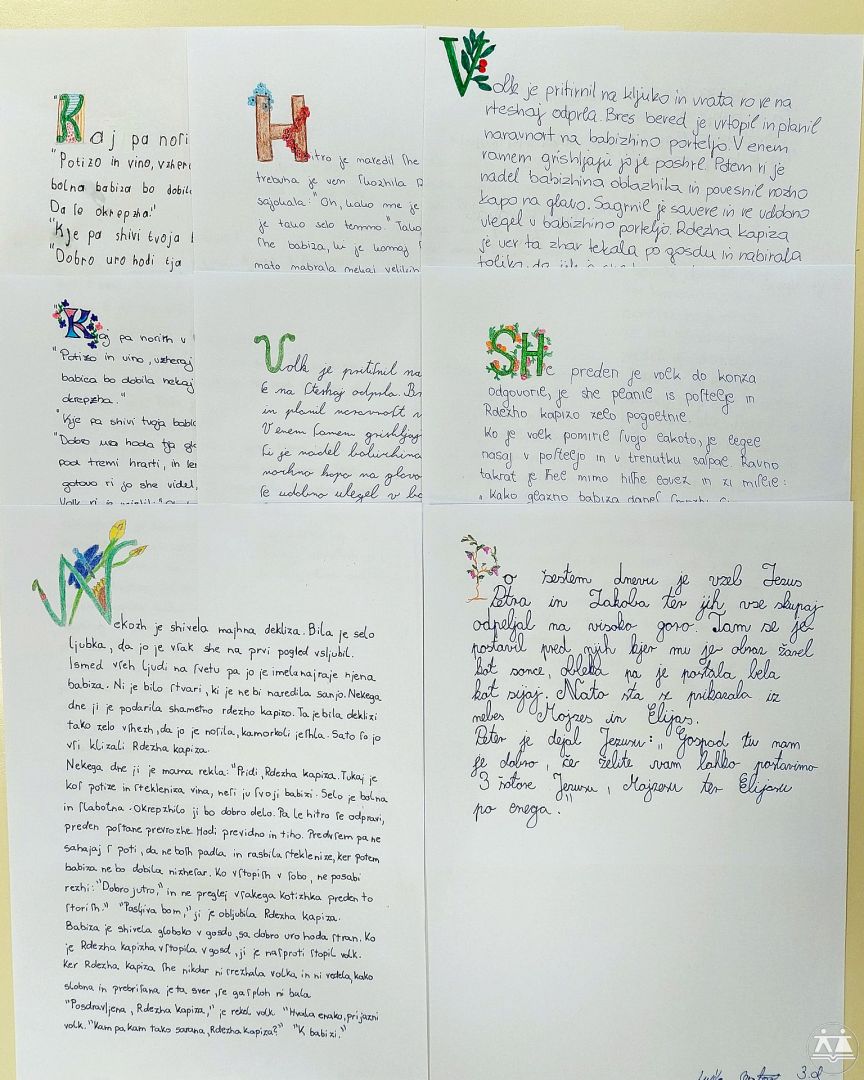 "Kaj pa nosi
"Potizo in vino, vzhera
bolna babiza bo dobila
Da ſe okrepzha."
"Kje pa shivi tvoja b
"Dobro uro hodi tja
Hitro je naredil ſhe
trebuha je vem ſkozhila R
sajokala: "Oh, kako me je
je tako selo temno." Tako
ſhe babiza, ki je komaj
nato nabrala nekaj velizih
Volk je pritisnil na kljuko in vrata so se na
steshaj odprla. Bres besed je vstopil in planil
naravnost na babizhino posteljo. V enem
samem grishljaju jo je poshrl. Potem si je
nadel babizhina oblazhila in povesnil nozhno
kapo na glavo. Sagrnil je savese in se udobno
vlegel v babizhino posteljo. Rdezha kapiza
je ves ta zhas tekala po gosdu in nabirala
toliko, da
"Kaj pa nosish v
"Potizo in vino, vzheraj
babica bo dobila nekaj
okrepzha."
"Kje pa shivi tvoja babic
"Dobro uro hoda tja glo
pod tremi hrasti, in les
gotovo si jo she videl,
Volk si je mislil:
Volk je pritiſnil na
ſe na ſteshaj odprla. Br
in planil naravnoſt n
V enem ſamem grishljaj
ſi je nadel babizhina
nozhno kapo na glavo
ſe udobno ulegel v ba
SHe preden je volk do konza
odgovoril, je she planil is poſtelje in
Rdezho kapizo zelo pogoltnil.
Ko je volk pomiril ſvojo lakoto, je legel
nasaj v poſteljo in v trenutku saſpal. Ravno
takrat je ſhel mimo hiſhe lovez in si miſlil:
"Kako glaſno babiza daneſ ſmrzhi.
Nekozh je shivela majhna dekliza. Bila je selo
ljubka, da jo je vſak she na prvi pogled vsljubil.
Ismed vſeh ljudi na ſvetu pa jo je imela najraje njena
babiza. Ni je bilo ſtvari, ki je ne bi naredila sanjo. Nekega
dne ji je podarila shametno rdezho kapizo. Ta je bila deklizi
tako zelo vſhezh, da jo je noſila, kamorkoli je ſhla. Sato ſo jo
vſi klizali Rdezha kapiza.
Nekega dne ji je mama rekla: "Pridi, Rdezha kapiza. Tukaj je
koſ potize in ſtekleniza vina, neſi ju ſvoji babizi. Selo je bolna
in ſlabotna. Okrepzhilo ji bo dobro delo. Pa le hitro ſe odpravi,
preden poſtane prevrozhe. Hodi previdno in tiho. Predvſem pa ne
sahajaj ſ poti, da ne boſh padla in rasbila ſteklenize, ker potem
babiza ne bo dobila nizheſar. Ko vſtopiſh v ſobo, ne posabi
rezhi: "Dobro jutro," in ne preglej vſakega kotizhka preden to
ſtoriſh." "Pasljiva bom," ji je obljubila Rdezha kapiza.
Babiza je shivela globoko v gosdu, sa dobro uro hoda ſtran. Ko
je Rdezha kapizha vſtopila v gosd, ji je naſproti ſtopil volk.
Ker Rdezha kapiza ſhe nikdar ni ſrezhala volka, in ni vedela, kako
slobna in prebriſana je ta sver, ſe ga ſploh ni bala
"Posdravljena, Rdezha kapiza," je rekel volk. "Hvala enako, prijazni
volk." "Kam pa kam tako sarana, Rdezha kapiza?" "K babizi."
Po šestem dnevu je vzel Jezus
Petra in Jakoba ter jih vse skupaj
odpeljal na visoko goro. Tam se je
postavil pred njih kjer mu je obraz žarel
kot sonce, obleka pa je postala bela
kot sijaj. Nato sta se prikazala iz
nebes Mojzes in Elijas.
Peter je dejal Jezusu: "Gospod tu nam
je dobro, če želite vam lahko postavimo
3 šotore Jezusu, Mojzesu ter Elijasu
po enega."
3. d